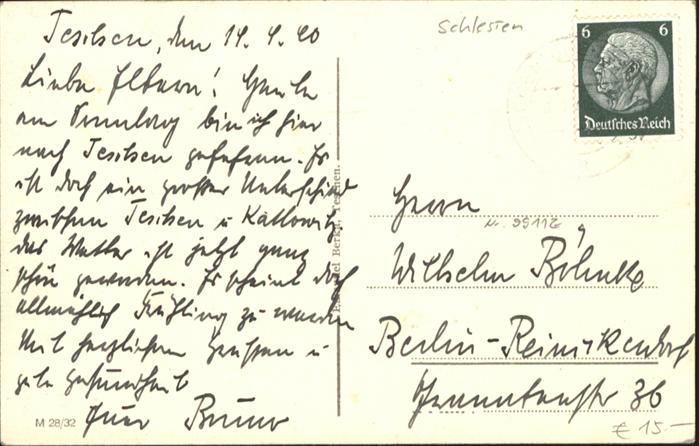 Teschen, den 14.4.40
Liebe Eltern! Heute
am Sonntag bin ich hier
nach Teschen gefahren. Es
ist doch ein großer Unterschied
zwischen Teschen u Kattowitz
das Wetter ist jetzt ganz
schön geworden. Es scheint doch
allmählich Frühling zu werden
Mit herzlichen Grüssen u
gute Gesundheit
Euer Bruno
M 28/32
Schlesien
6 6
Deutsches Reich
Herrn
N. 99112
Wilhelm Böhnke
Berlin-Reinickendorf
36
€ 15.-